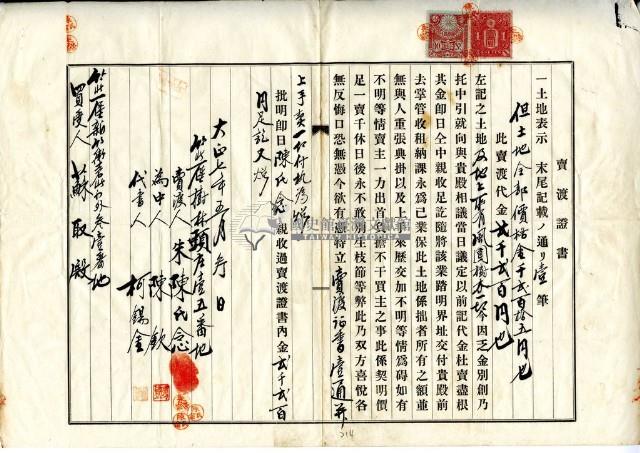 賣渡證書
一土地表示 末尾記載ノ通リ壹筆
但土地全部價格金千貳百拾五円也
此賣渡代金貳千貳百円也
左記之土地及地上所有園圍樹木一切今因乏金別創乃
托中引就向與貴殿相議當日議定以前記代金杜賣盡根
其金即日仝中親收足訖隨將該業踏明界址交付貴殿前
去掌管收租納課永爲己業保此土地係拙者所有之額並
無與人重張典掛以及上手來歷交加不明等情爲碍如有
不明等情賣主一力出首抵擔不干買主之事此係契明價
足一賣千休日後永不敢別生枝節等弊此乃双方喜悅各
無反悔口恐無憑今欲有憑特立賣渡証書壹通并
上手契一紙付執爲炤
批明即日陳氏念親收過賣渡證書內金貳千貳百
円足訖又炤
大正七年五月 日
樹林頭 壹五番地
賣渡人 朱陳氏念
爲中人 陳欽
代書人 柯錫金
番地
買受人 蘇取殿
臺灣史館 文獻館
TAIWAN HISTORICA
214